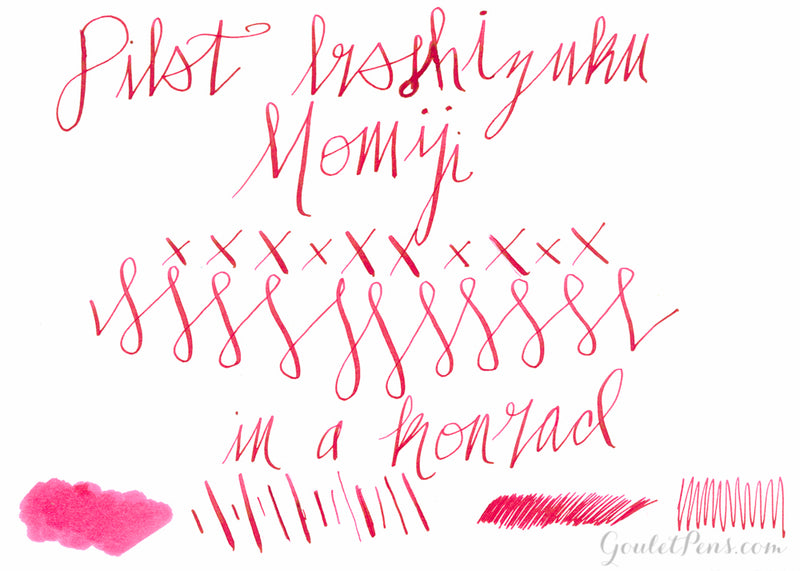 Pilot Iroshizuku
Momiji
x x x x x x x x x x
in a konrad
GouletPens.com